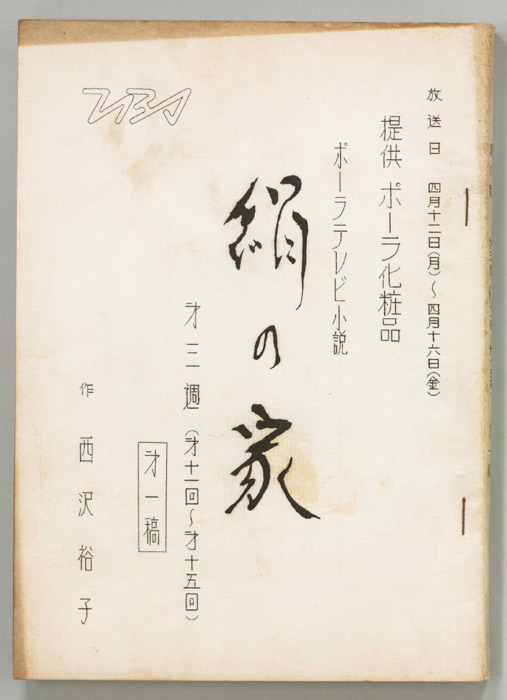 放送日 四月十二日(月)～四月十六日(金)
提供 ポーラ化粧品
ポーラテレビ小説
絹の家
才三週(才十一回～才十五回)
才一稿
作 西沢裕子
TBS